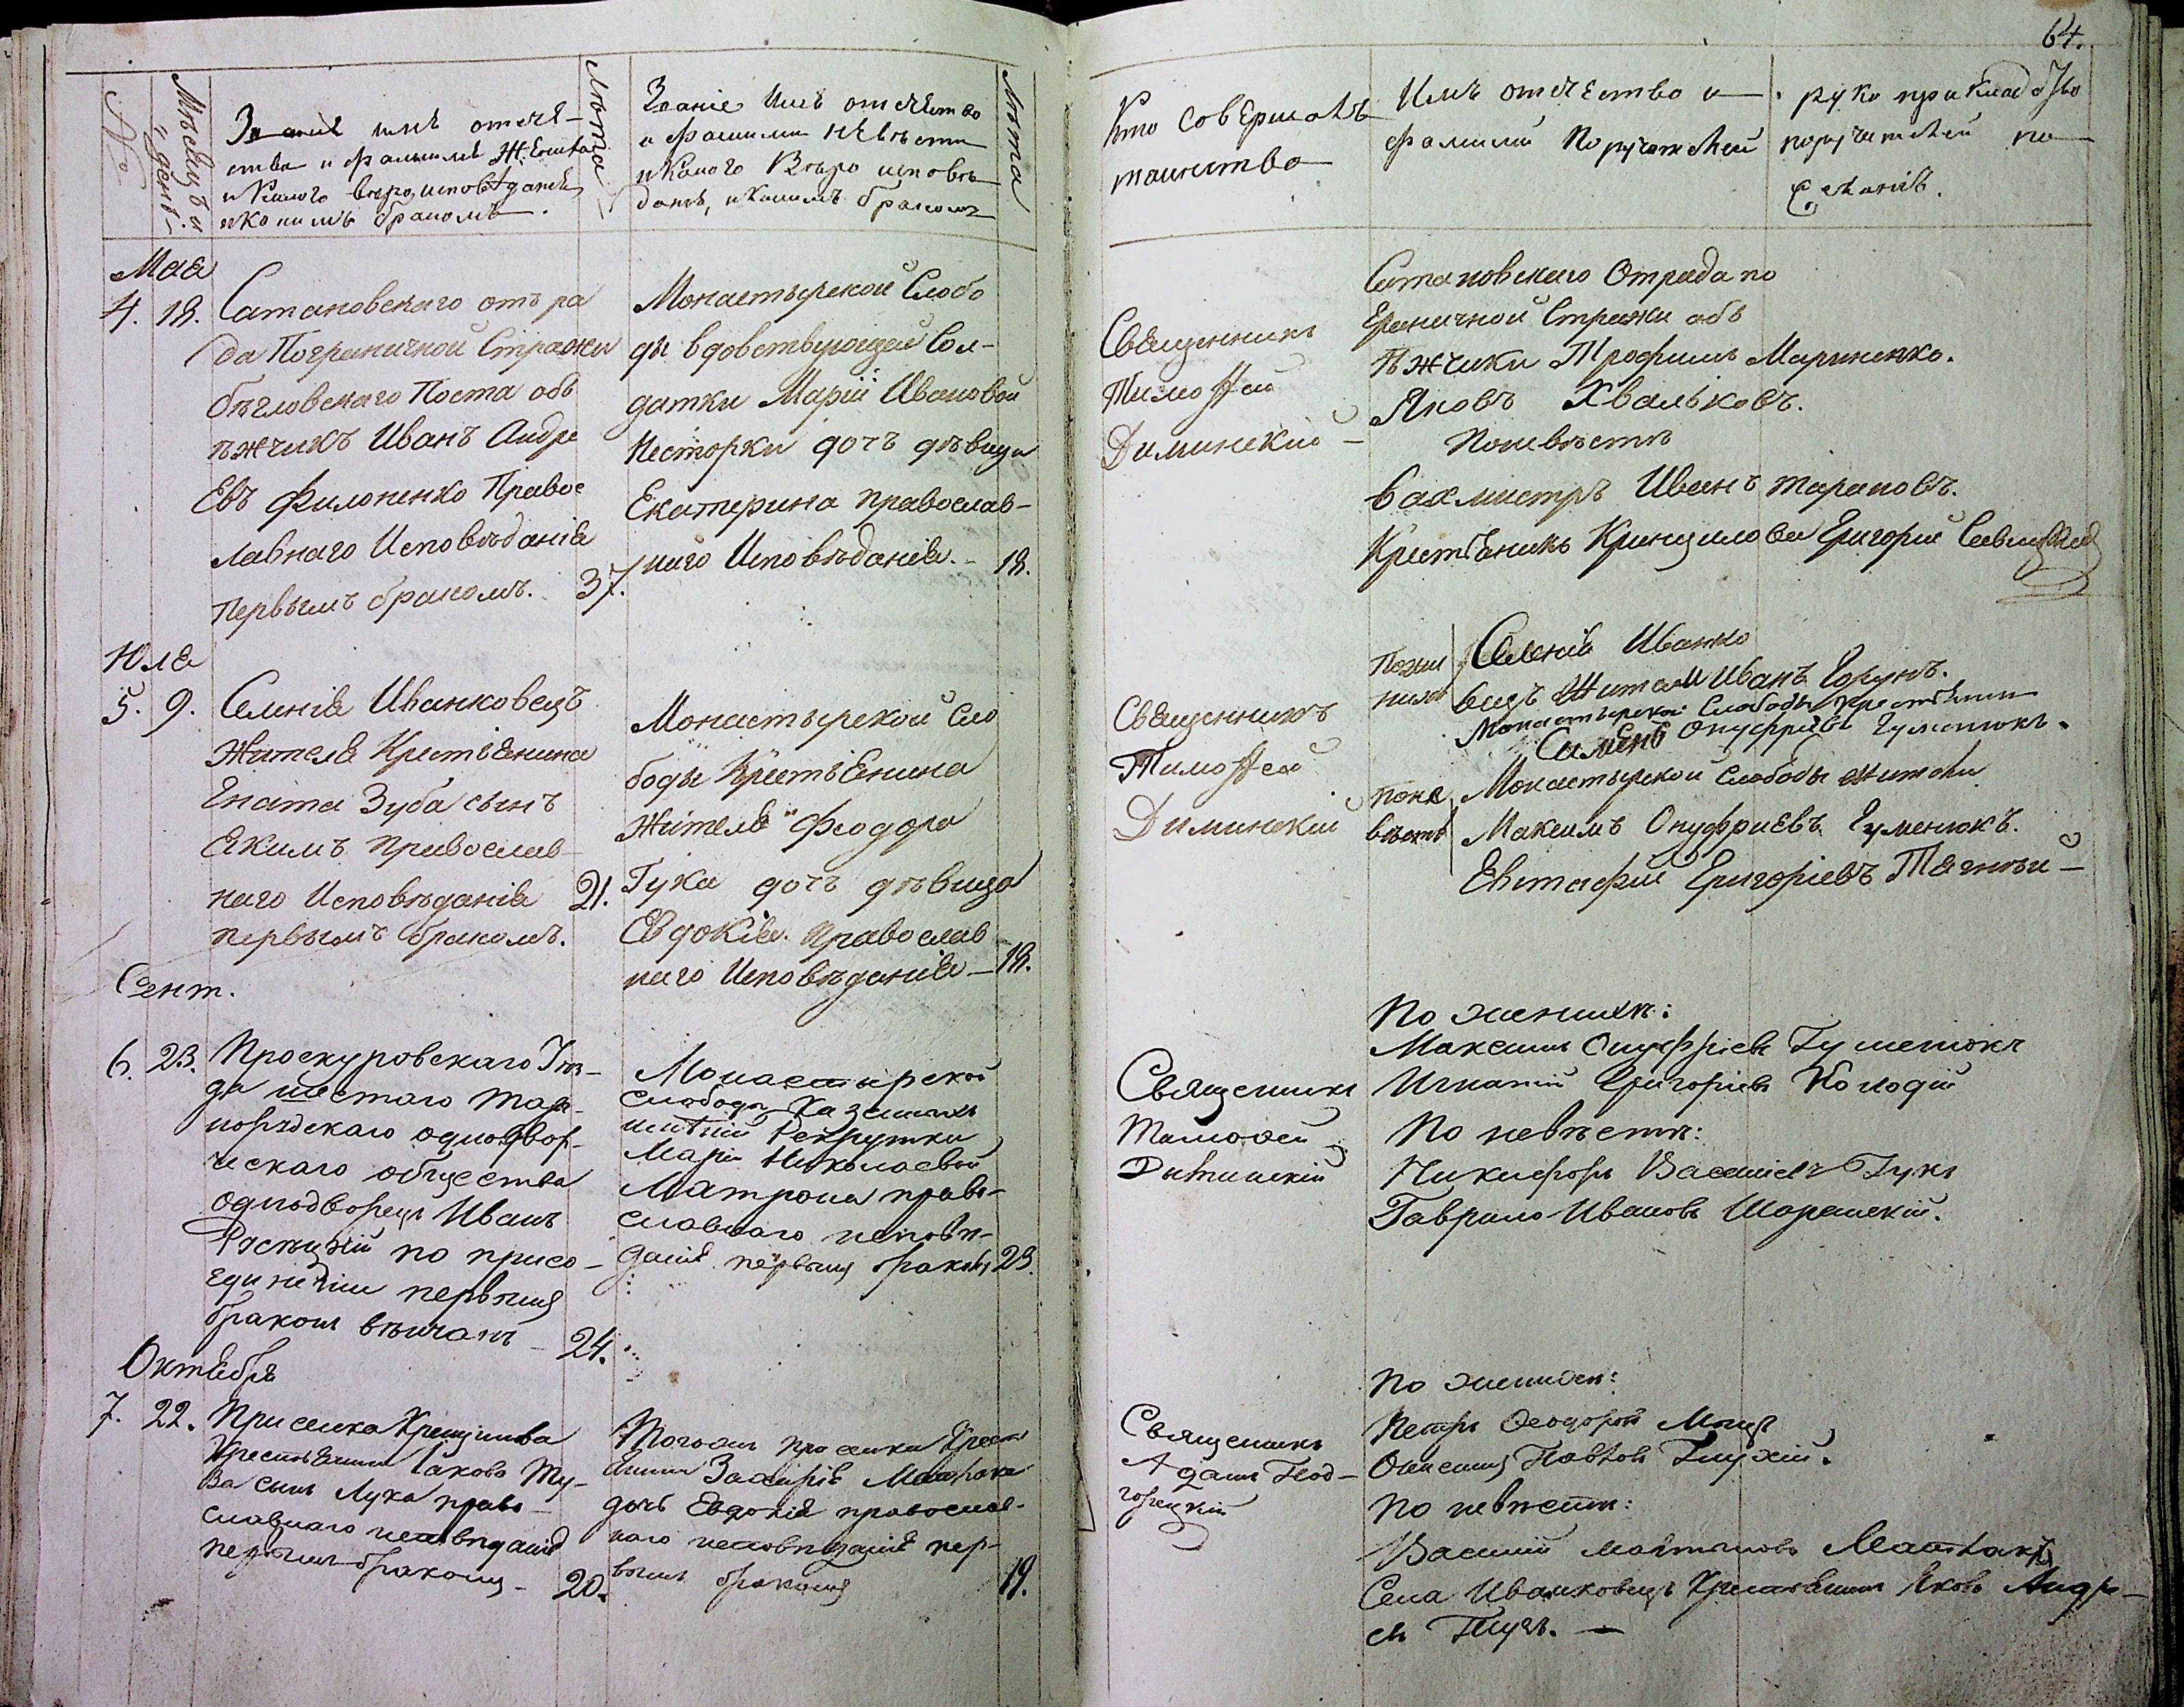 64.
№
Мѣсяцъ и
день.
Званіе имя отече-
ства и фамилія Жениха
и Какого вѣроисповѣданія
и Коимъ бракомъ.
Лѣта
Званіе Имя отечество
и фамилія Невѣсты
и Какого Вѣроисповѣ
данія, и Коимъ бракомъ
Лѣта
Кто совершалъ
таинство
Имя отечество и
фамилія Поручителей
рукоприкладство
поручителей по
Мая
4. 18. Сатановскаго отъря
да Пограничной Стражи
поста объ
ѣжчикъ Иванъ Андре
евъ Филоненко Правос
лавнаго Исповѣданія
первымъ бракомъ. 37.
Монастырской Слобо
ды вдовствующей Сол-
датки Маріи Ивановой
Несторки дочъ дѣвица
Екатерина православ-
наго Исповѣданія. 18.
Священникъ
Тимоѳей
Диминскій
Сатановскаго Отряда по
граничной Стражи объ
ѣжчики Трофимъ Мариненко.
Яковъ Хвальковъ.
По невѣстѣ
Вахмистръ Иванъ Тарановъ.
Крестьянинъ Крищилова Григорій
Юля
5. 9. Селенія Иванковецъ
Жителя Крестьянина
Игната Зуба сынъ
Якимъ православ-
наго Исповѣданія 21.
первымъ бракомъ.
Монастырской Сло
боды Крестьянина
Жителя Феодора
Гука дочъ дѣвица
Евдокія православ
наго Исповѣданія 18.
Священникъ
Тимоѳей
Диминскій
Селенія Иванко
вецъ Жители Иванъ Горунъ.
Монастырской Слободы Крестьянинъ
Симеонъ Онуфріевъ Гуменюкъ.
поне
вѣстѣ
Монастырской Слободы жители
Максимъ Онуфріевъ Гуменюкъ.
Евстафій Григоріевъ
Сент.
6. 23. Проскуровскаго Уѣз-
да шестаго
однодвор-
ческаго общества
однодворецъ Иванъ
по присо-
единеніи первымъ
бракомъ вѣнчанъ 24.
Монастырской
слободы Казенныхъ
имѣній Рекрутки
Маріи Николаевой
Матрона право-
славнаго исповѣ-
данія первымъ бракомъ 23.
Священникъ
Тимоѳей
Диминскій
По женихѣ:
Максимъ Онуфріевъ Гуменюкъ
Игнатій Григоріевъ Колодій
По невѣстѣ:
Никифоръ Василіевъ Гукъ
Гаврило Ивановъ Шаранскій.
Октября
7. 22. Приселка Крищилова
Крестьянина Іакова
сынъ Лука право-
славнаго исповѣданія
первымъ бракомъ 20.
Тогожъ приселка Крестья
нина Захарія
дочь Евдокія православ-
наго исповѣданія пер-
вымъ бракомъ 19.
Священникъ
Адамъ Под-
горецкій
По женихѣ:
Петръ Ѳеодоровъ
Глухій.
По невѣстѣ:
Василій Мартыновъ
Села Иванковецъ Крестьянинъ Яковъ Андре-
евъ